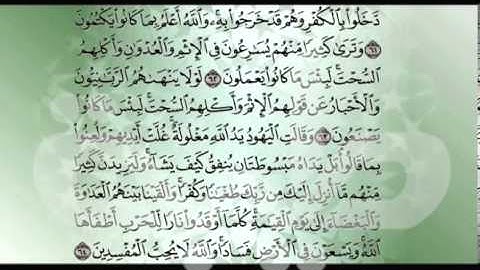 دَّخَلُوا۟ بِٱلْكُفْرِ وَهُمْ قَدْ خَرَجُوا۟ بِهِۦ ۚ وَٱللَّهُ أَعْلَمُ بِمَا كَانُوا۟ يَكْتُمُونَ
٦١ وَتَرَىٰ كَثِيرًا مِّنْهُمْ يُسَٰرِعُونَ فِى ٱلْإِثْمِ وَٱلْعُدْوَٰنِ وَأَكْلِهِمُ
ٱلسُّحْتَ ۚ لَبِئْسَ مَا كَانُوا۟ يَعْمَلُونَ ٦٢ لَوْلَا يَنْهَىٰهُمُ ٱلرَّبَّٰنِيُّونَ
وَٱلْأَحْبَارُ عَن قَوْلِهِمُ ٱلْإِثْمَ وَأَكْلِهِمُ ٱلسُّحْتَ ۚ لَبِئْسَ مَا كَانُوا۟
يَصْنَعُونَ ٦٣ وَقَالَتِ ٱلْيَهُودُ يَدُ ٱللَّهِ مَغْلُولَةٌ ۚ غُلَّتْ أَيْدِيهِمْ وَلُعِنُوا۟
بِمَا قَالُوا۟ ۘ بَلْ يَدَاهُ مَبْسُوطَتَانِ يُنفِقُ كَيْفَ يَشَآءُ ۚ وَلَيَزِيدَنَّ كَثِيرًا
مِّنْهُم مَّآ أُنزِلَ إِلَيْكَ مِن رَّبِّكَ طُغْيَٰنًا وَكُفْرًا ۚ وَأَلْقَيْنَا بَيْنَهُمُ ٱلْعَدَٰوَةَ
وَٱلْبَغْضَآءَ إِلَىٰ يَوْمِ ٱلْقِيَٰمَةِ ۚ كُلَّمَآ أَوْقَدُوا۟ نَارًا لِّلْحَرْبِ أَطْفَأَهَا
ٱللَّهُ ۚ وَيَسْعَوْنَ فِى ٱلْأَرْضِ فَسَادًا ۚ وَٱللَّهُ لَا يُحِبُّ ٱلْمُفْسِدِينَ ٦٤